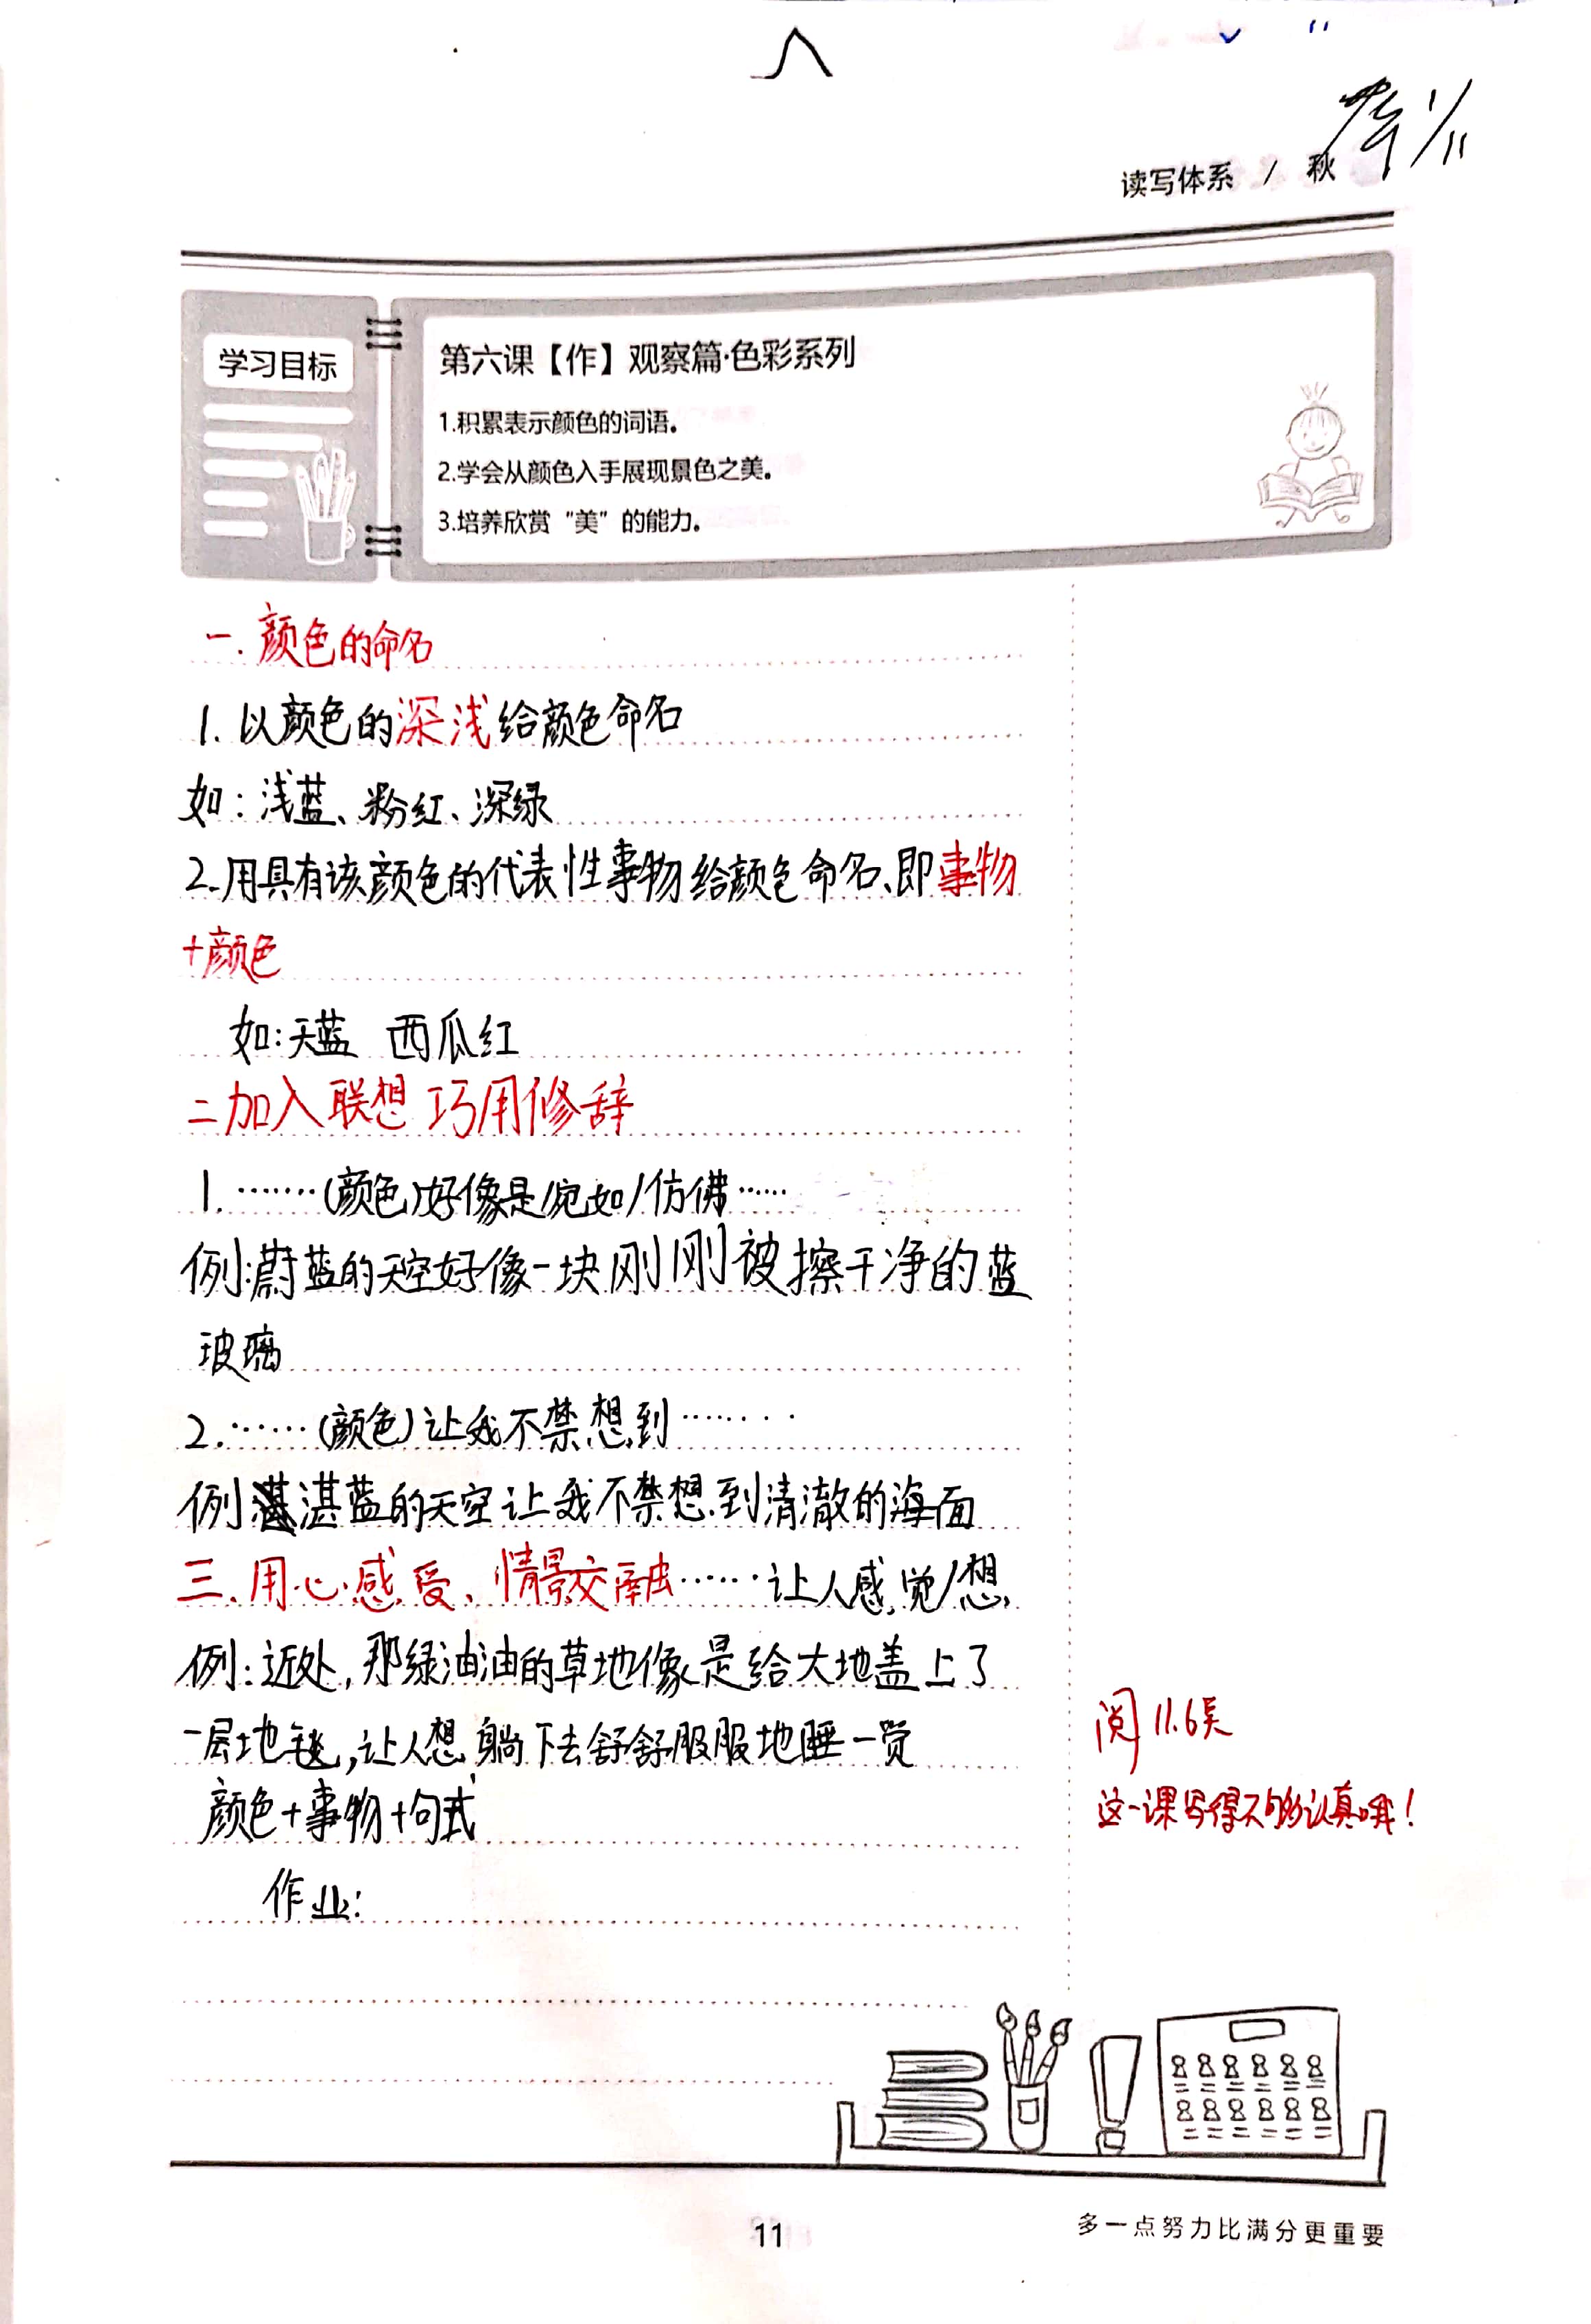 读写体系 / 秋
学习目标
第六课【作】观察篇·色彩系列
1.积累表示颜色的词语。
2.学会从颜色入手展现景色之美。
3.培养欣赏“美”的能力。
一.颜色的命名
1.以颜色的深浅给颜色命名
如:浅蓝、粉红、深绿
2.用具有该颜色的代表性事物给颜色命名、即事物
+颜色
如:天蓝 西瓜红
二加入联想 巧用修辞
1.……(颜色)好像是/宛如/仿佛……
例:蔚蓝的天空好像一块刚刚被擦干净的蓝
玻璃
2.……(颜色)让我不禁想到……
例湛蓝的天空让我不禁想到清澈的海面
三.用心感受、情景交融……让人感觉/想
例:近处,那绿油油的草地像是给大地盖上了
一层地毯,让人想躺下去舒舒服服地睡一觉
颜色+事物+句式
作业:
阅 11.6吴
这一课写得不够认真哦!
11
多一点努力比满分更重要